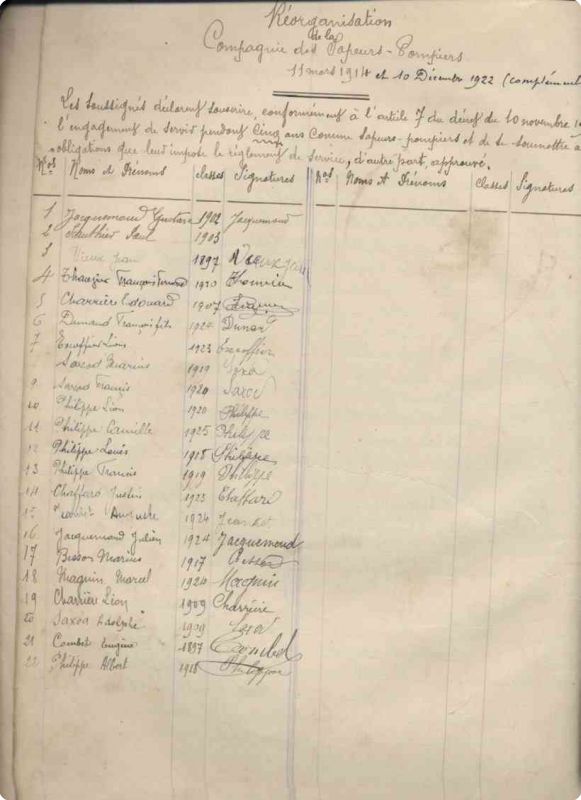 Réorganisation
de la
Compagnie des Sapeurs-Pompiers
11 mars 1914 et 10 Décembre 1922 (complément
Les soussignés déclarent souscrire, conformément à l'article 7 du décret du 10 novembre
l'engagement de servir pendant Cinq ans comme sapeurs-pompiers et de se soumettre a
obligations que leur impose le règlement de service, d'autre part, approuvé.
Nos Noms et Prénoms classes Signatures Nos Noms et Prénoms Classes Signatures
1 Jacquemoud Gustave 1902 Jacquemoud
2 Paul 1903
3 Vieux Jean 1897 Vieux Jean
4 François 1920
5 Charrière Edouard 1907
6 Dunand François fils 1924 Dunand
7 Excoffier Léon 1923 Excoffier
Marius 1919
9 François 1920
10 Philippe Léon 1920 Philippe
11 Philippe Camille 1925 Philippe
12 Philippe Louis 1918 Philippe
13 Philippe Francis 1919 Philippe
14 Chaffard Justin 1923 Chaffard
15 Auguste 1924
16 Jacquemoud Julien 1924 Jacquemoud
17 Besson Marius 1917 Besson
18 Magnin Marcel 1920 Magnin
19 Charrière Léon 1909 Charrière
20 Adolphe 1909
21 Combet Eugène 1897 Combet
22 Philippe Albert 1918 Philippe